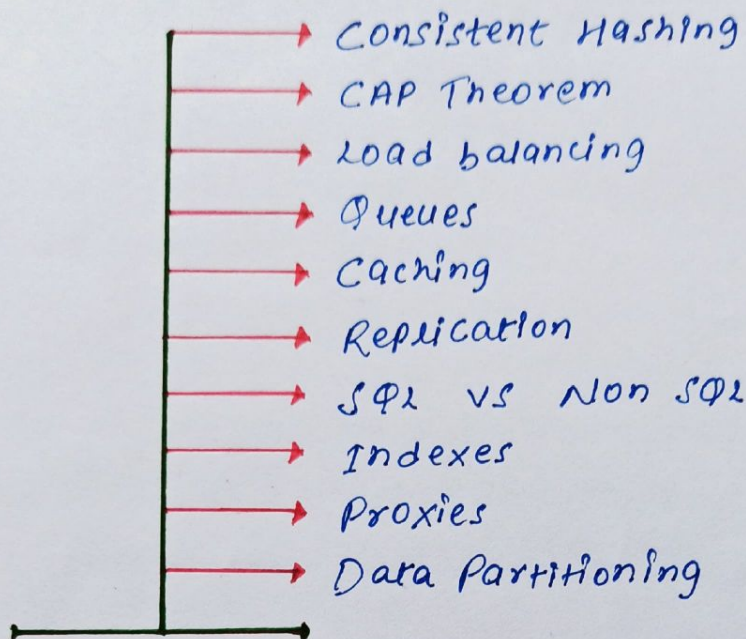 Consistent Hashing
CAP Theorem
Load balancing
Queues
Caching
Replication
SQL VS Non SQL
Indexes
Proxies
Data Partitioning